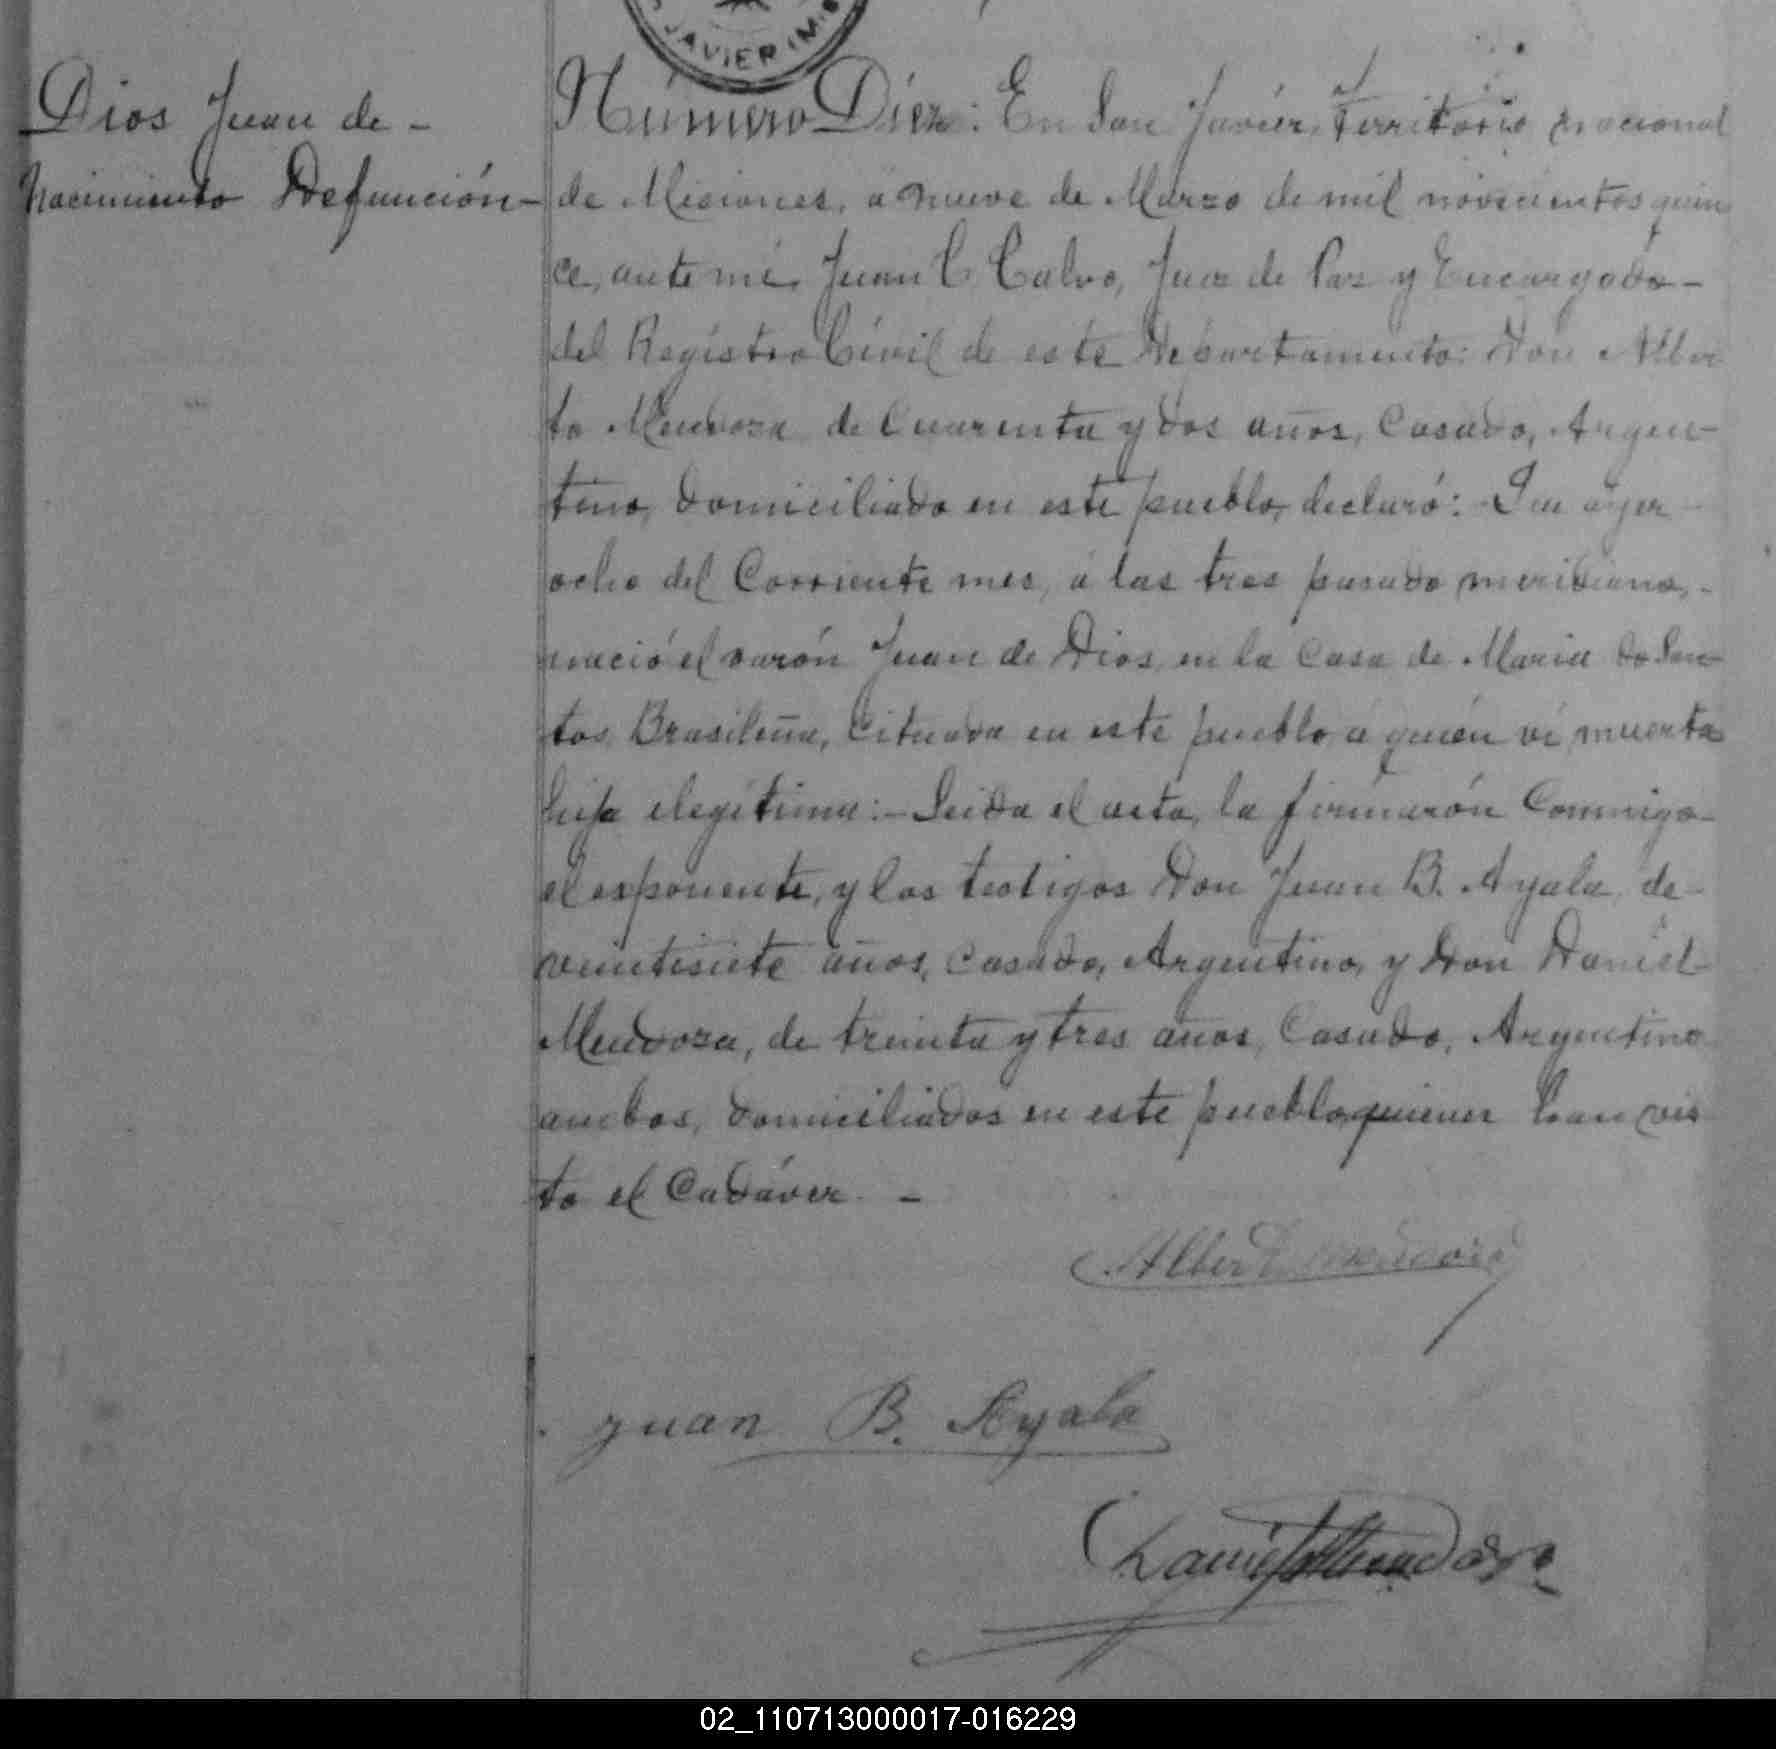 JAVIER (M
Dios Juan de -
Nacimiento Defunción -
Número Diez: En San Javiér, Territorio nacional
de Misiones, á nueve de Marzo de mil novecientos quin
ce, ante mí, Juan C. Calvo, Juez de Paz y Encargado -
del Registro Civil de este Departamento: Don Alber
to Mendoza de Cuarenta y dos años, Casado, Argen-
tino, domiciliado en este pueblo, declaró: - Que ayer -
ocho del Corriente mes, á las tres pasado meridiano, -
nació el varón Juan de Dios, en la Casa de Maria do San-
tos, Brasileña, Cituada en este pueblo, á quién ví, muerta
hija elegítima: - Leida el acta, la firmarón Conmigo -
el exponente, y los testigos Don Juan B. Ayala, de -
veintisiete años, Casado, Argentino, y Don Daniel
Mendoza, de treinta y tres años, Casado, Argentino
ambos, domiciliados en este pueblo, quienes han vis
to el Cadáver. -
Alberto Mendoza
Juan B. Ayala
Daniel Mendoza
02_110713000017-016229